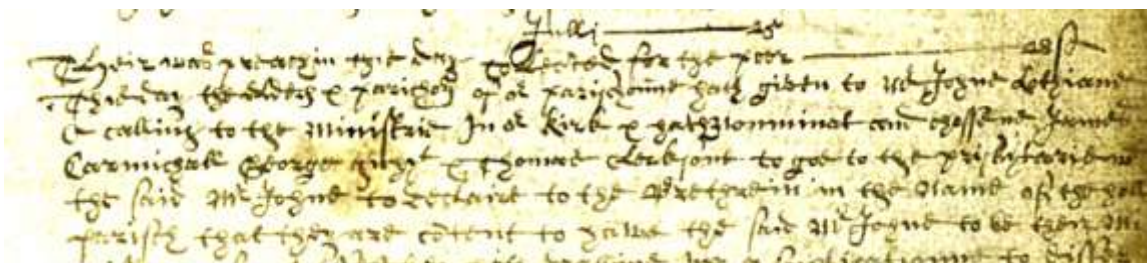 Julli 25
Their was preachin this day Collected for the poor 28 s
This day the elderis & parichon of or parischoune hath given to Mr Johne Lethiane
a calling to the Ministrie In or Kirk & hath Nominnat and chossene James
Carmichall George & Thomas Clerksone to goe to the presbitarie
the said Mr Johne to declaire to the Bretherein in the Name of the
parisch that they are content to have the said Mr Johne to be their
to